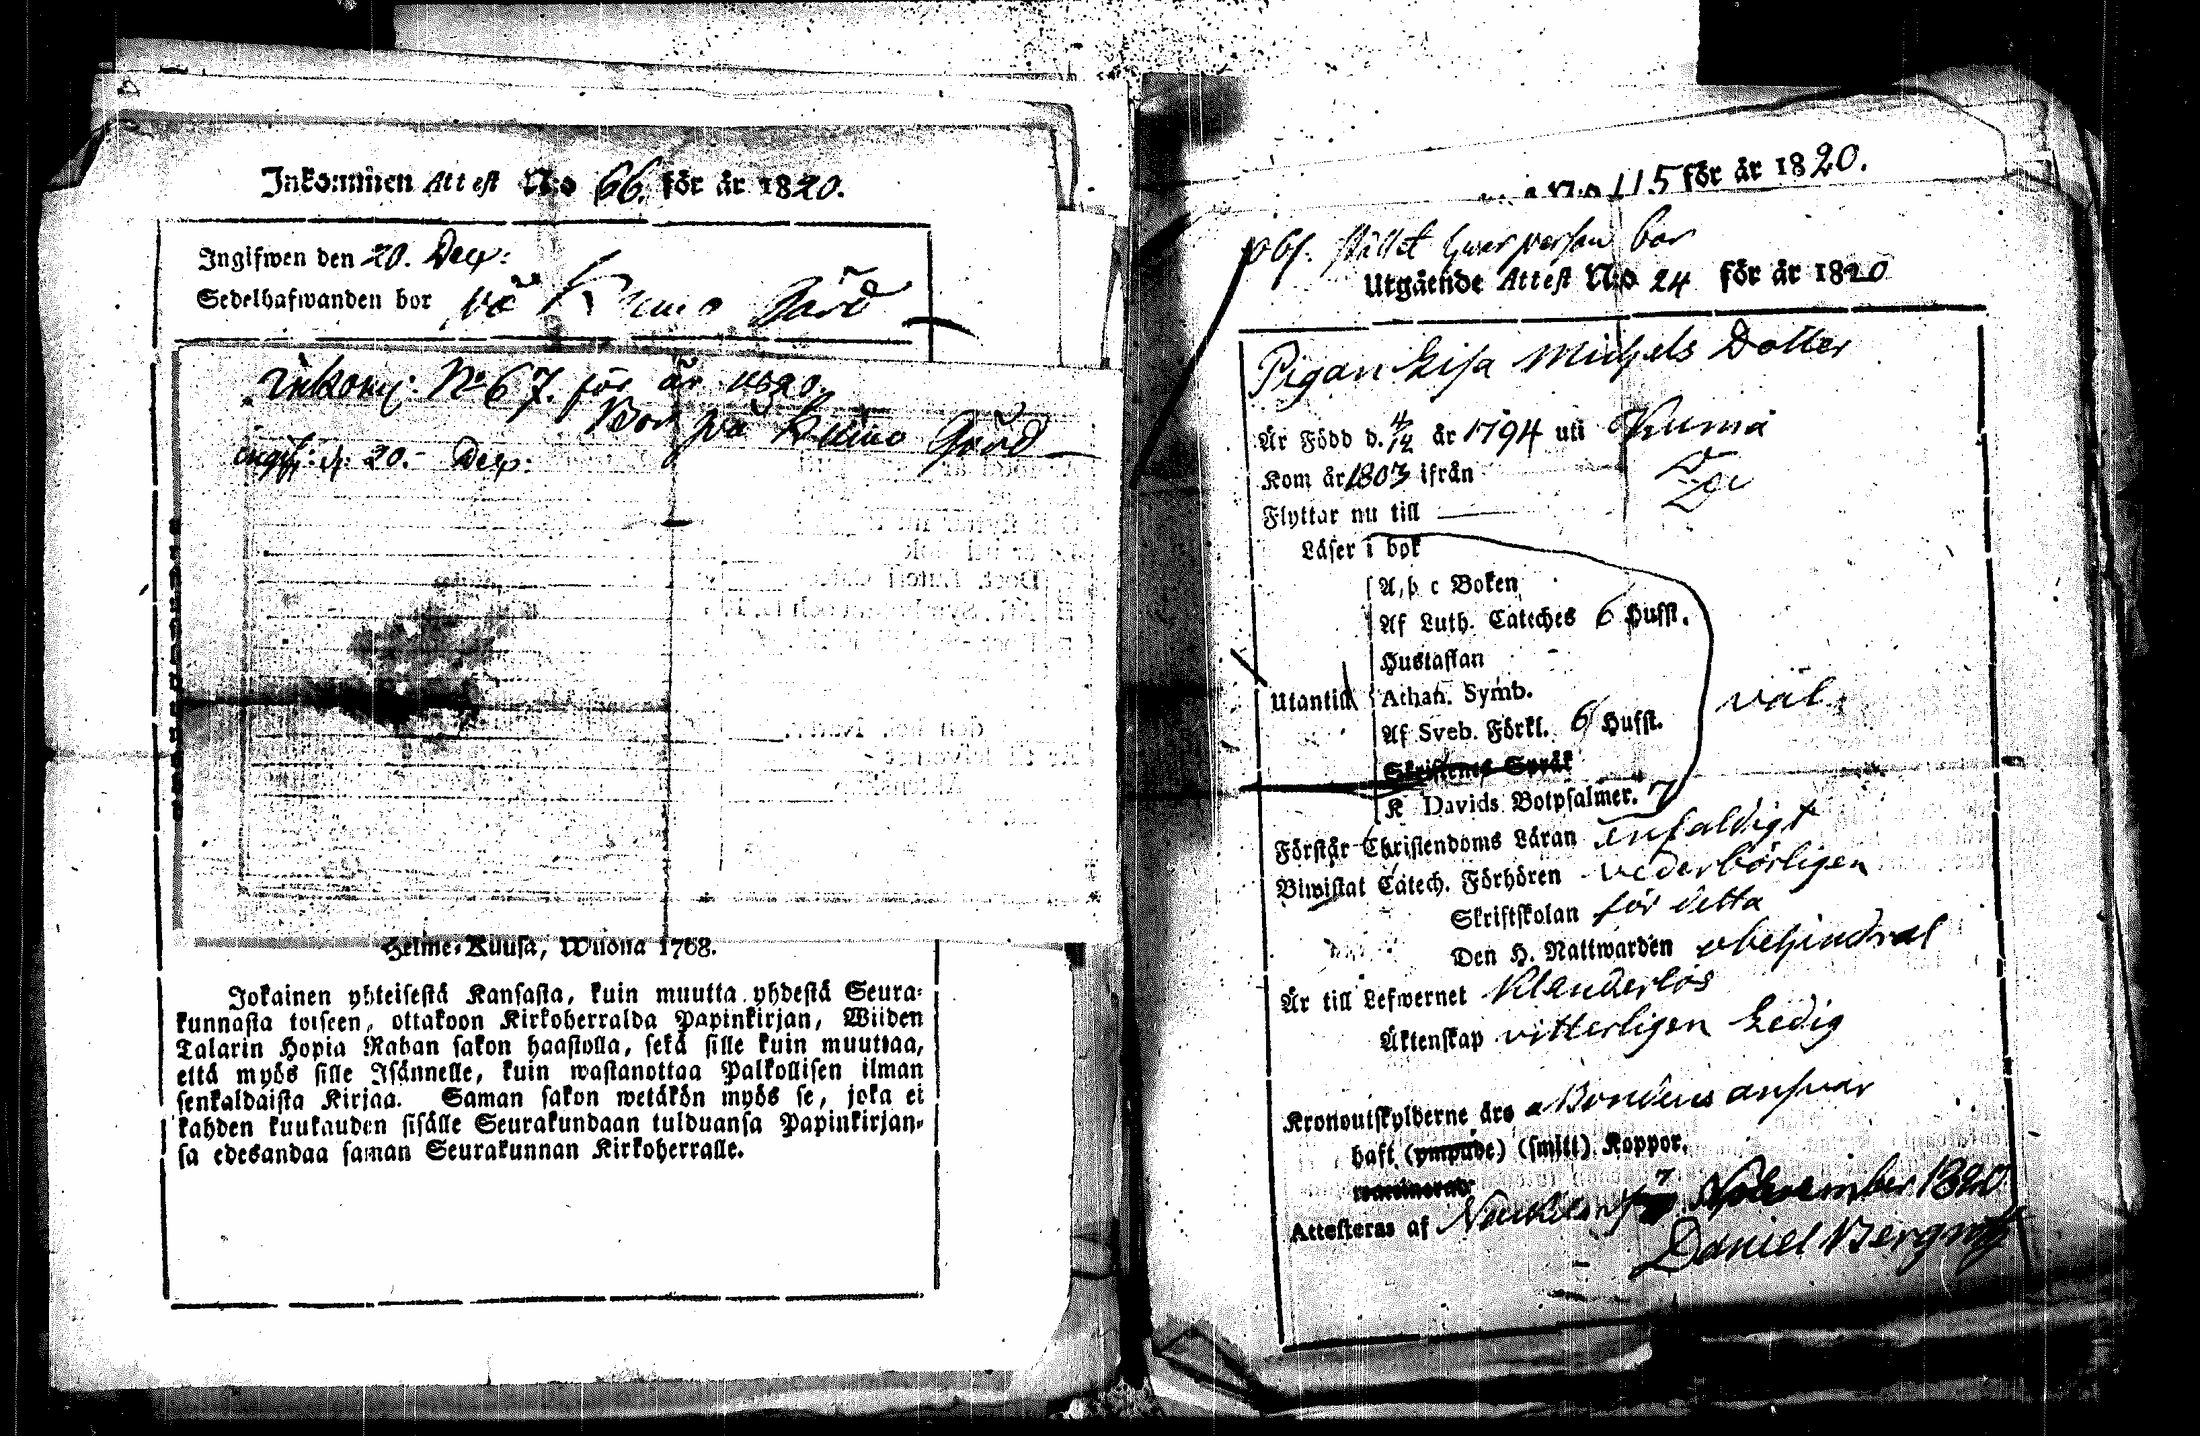 Inkommen Attest N:o 66. för år 1820.
Ingifwen den 20. Dec:
Sedelhafwanden bor på Kumo Gård
Inkom: No 67. för år 1820.
Bor på Kumo Gård
ingif: d. 20. Dec:
Helme-Kuusa, Wuona 1768.
Jokainen yhteisestä Kansasta, kuin muutta yhdestä Seura-
kunnasta toiseen, ottakoon Kirkoherralda Papinkirjan, Wiiden
Talarin Hopia Rahan sakon haastolla, sekä sille kuin muuttaa,
että myös sille Isännelle, kuin wastanottaa Palkollisen ilman
senkaldaista Kirjaa. Saman sakon wetäkön myös se, joka ei
kahden kuukauden sisälle Seurakundaan tulduansa Papinkirjan-
sa edesandaa saman Seurakunnan Kirkoherralle.
N:o 115 för år 1820.
obs. stället hwar person bor
Utgående Attest N:o 24 för år 1820
Pigan Lisa Michels Dotter
Är Född d. 4/12 år 1794 uti
Kom år 1803 ifrån
Flyttar nu till
Läser i bok
A, b c Boken
Af Luth. Cateches 6 Hufst.
Hustaflan
Utantill Athan. Symb. väl
Af Sveb. Förkl. 6 Hufst.
Skriftenes Språk
K Davids Botpsalmer. 7
Förstår Christendoms Läran enfaldigt
Biwistat Catech. Förhören vederbörligen
Skriftskolan för detta
Den H. Nattwarden obehindrad
Är till Lefwernet Klanderlös
Äktenskap vitterligen Ledig
Kronoutskylderne äro Bondens answar
haft (ympade) (smitt) Koppor.
Attesteras af 7 November 1820
Daniel Bergroth